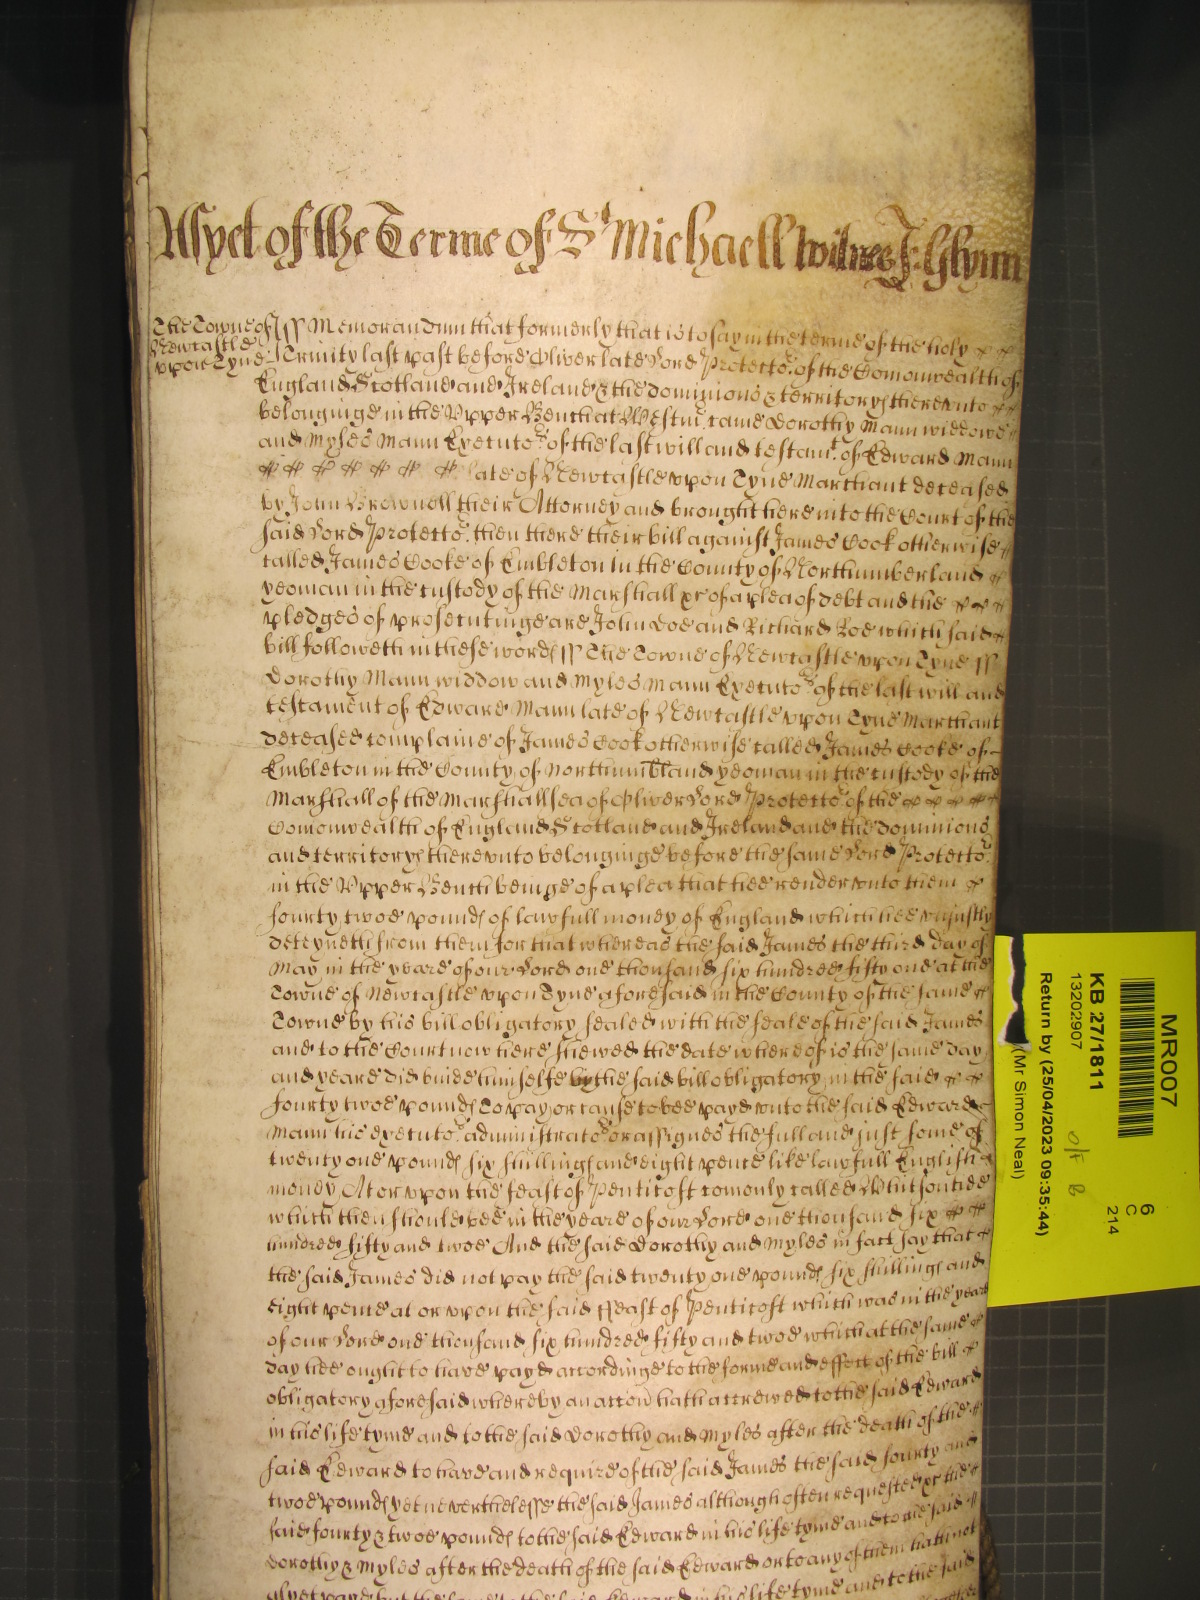 As yet of the Terme of St Michaell Witnes J: Glynn
The Towne of
Newcastle
upon Tyne
ss Memorandum that formerly that is to say in the terme of the holy
Trinity last past before Oliver late Lord Protector of the Comonwealth of
England Scotland and Ireland & the dominions & territoryes thereunto
belonginge in the Upper Bench at Westmr came Dorothy Mann widdowe
and Myles Mann Executors of the last will and testamt of Edward Mann
late of Newcastle upon Tyne Marchant deceased
by John Brownell their Attorney and brought here into the Court of the
said Lord Protector then there their bill against James Cook otherwise
called James Cooke of Embleton in the County of Northumberland
yeoman in the custody of the Marshall &c of a plea of debt and the
pledges of prosecutinge are John Doe and Richard Roe which said
bill followeth in these words ss The Towne of Newcastle upon Tyne ss
Dorothy Mann widdow and Myles Mann Executors of the last will and
testament of Edward Mann late of Newcastle upon Tyne Marchant
deceased complaine of James Cook otherwise called James Cooke of
Embleton in the County of Northumbland yeoman in the custody of the
Marshall of the Marshallsea of Oliver Lord Protector of the
Comonwealth of England Scotland and Ireland and the dominions
and territoryes thereunto belonginge before the same Lord Protector
in the Upper Bench beinge of a plea that hee render unto them
fourty twoe pounds of lawfull money of England which hee unjustly
deteyneth from them for that whereas the said James the third day of
May in the yeare of our Lord one thousand six hundred fifty one at the
Towne of Newcastle upon Tyne aforesaid in the County of the same
Towne by his bill obligatory sealed with the seale of the said James
and to the Court now here shewed the date whereof is the same day
and yeare did binde himselfe by the said bill obligatory in the said
fourty twoe pounds To pay or cause to bee payd unto the said Edward
Mann his executors administrators or assignes the full and just some of
twenty one pounds six shillings and eight pence like lawfull English
money At or upon the feast of Penticost comonly called Whitsontide
which then should bee in the yeare of our Lord one thousand six
hundred fifty and twoe And the said Dorothy and Myles in fact say that
the said James did not pay the said twenty one pounds six shillings and
eight pence at or upon the said ffeast of Penticost which was in the yeare
of our Lord one thousand six hundred fifty and twoe which at the same
day hee ought to have payd accordinge to the forme and effect of the bill
obligatory aforesaid whereby an accon hath accrewed to the said Edward
in his life tyme and to the said Dorothy and Myles after the death of the
said Edward to have and require of the said James the said fourty and
twoe pounds yet neverthelesse the said James although often requested &c the
said fourty & twoe pounds to the said Edward in his life tyme and to the said
Dorothy & Myles after the death of the said Edward or to any of them hath not
as yet payd but the same to the said Edward in his life tyme and to the said
MR007
6
C
214
KB 27/1811
13202907
O/F B
Return by (25/04/2023 09:35:44)
(Mr Simon Neal)